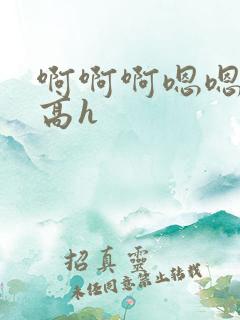 啊啊啊嗯嗯
高h
招真靈
未经同意禁止转载